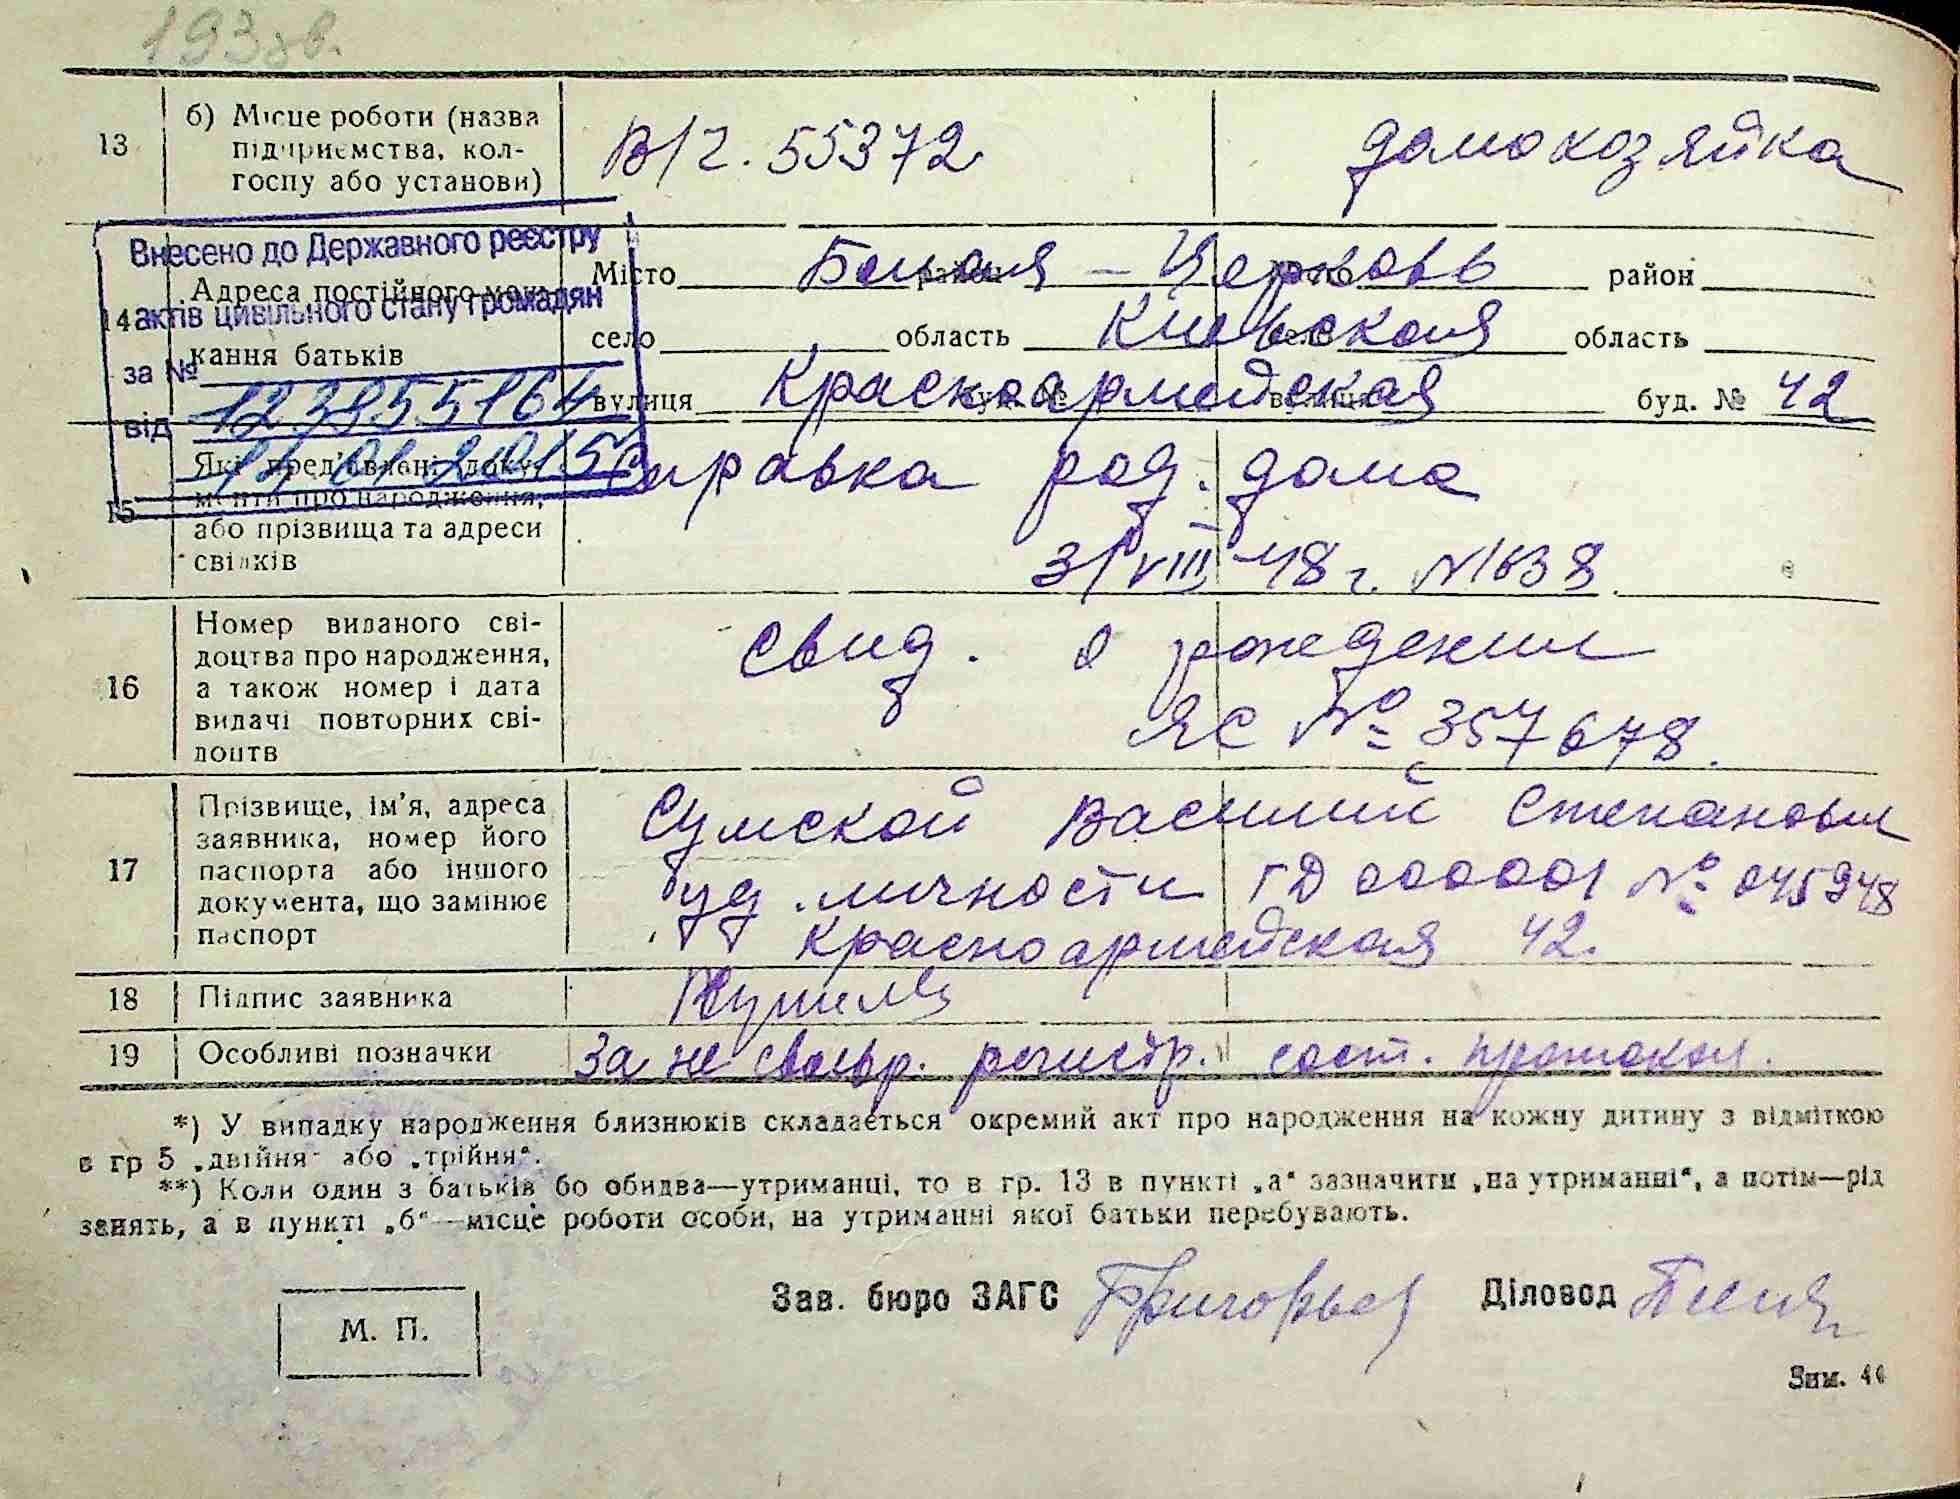 193 зв.
13
б) Місце роботи (назва
підприємства, кол-
госпу або установи)
В/Ч. 55372
домохозяйка
Внесено до Державного реєстру
актів цивільного стану громадян
за №
від 14.01.2015
14
Адреса постійного меш-
кання батьків
Місто Белая - Церковь район
село область Киевская область
вулиця Красноармейская буд. № 42
15
Які пред'явлені доку-
менти про народження,
або прізвища та адреси
свідків
Справка род. дома
31/VIII-48 г. №1638
16
Номер виданого сві-
доцтва про народження,
а також номер і дата
видачі повторних сві-
доцтв
Свид. о рождении
ЯС № 357678.
17
Прізвище, ім'я, адреса
заявника, номер його
паспорта або іншого
документа, що замінює
паспорт
Сумской Василий Степанович
уд. личности ГД 000001 № 045948
Красноармейская 42.
18
Підпис заявника
19
Особливі позначки
За не своевр. регистр. сост. протокол.
*) У випадку народження близнюків складається окремий акт про народження на кожну дитину з відміткою
в гр 5 „двійня" або „трійня".
**) Коли один з батьків бо обидва—утриманці, то в гр. 13 в пункті „а" зазначити „на утриманні", а потім—рід
занять, а в пункті „б"—місце роботи особи, на утриманні якої батьки перебувають.
Зав. бюро ЗАГС
Діловод
М. П.
Зим.